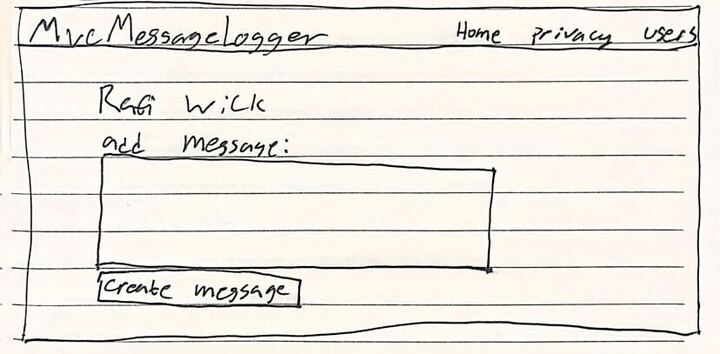 MvcMessageLogger Home privacy users
Rafi Wick
add message:
Create message